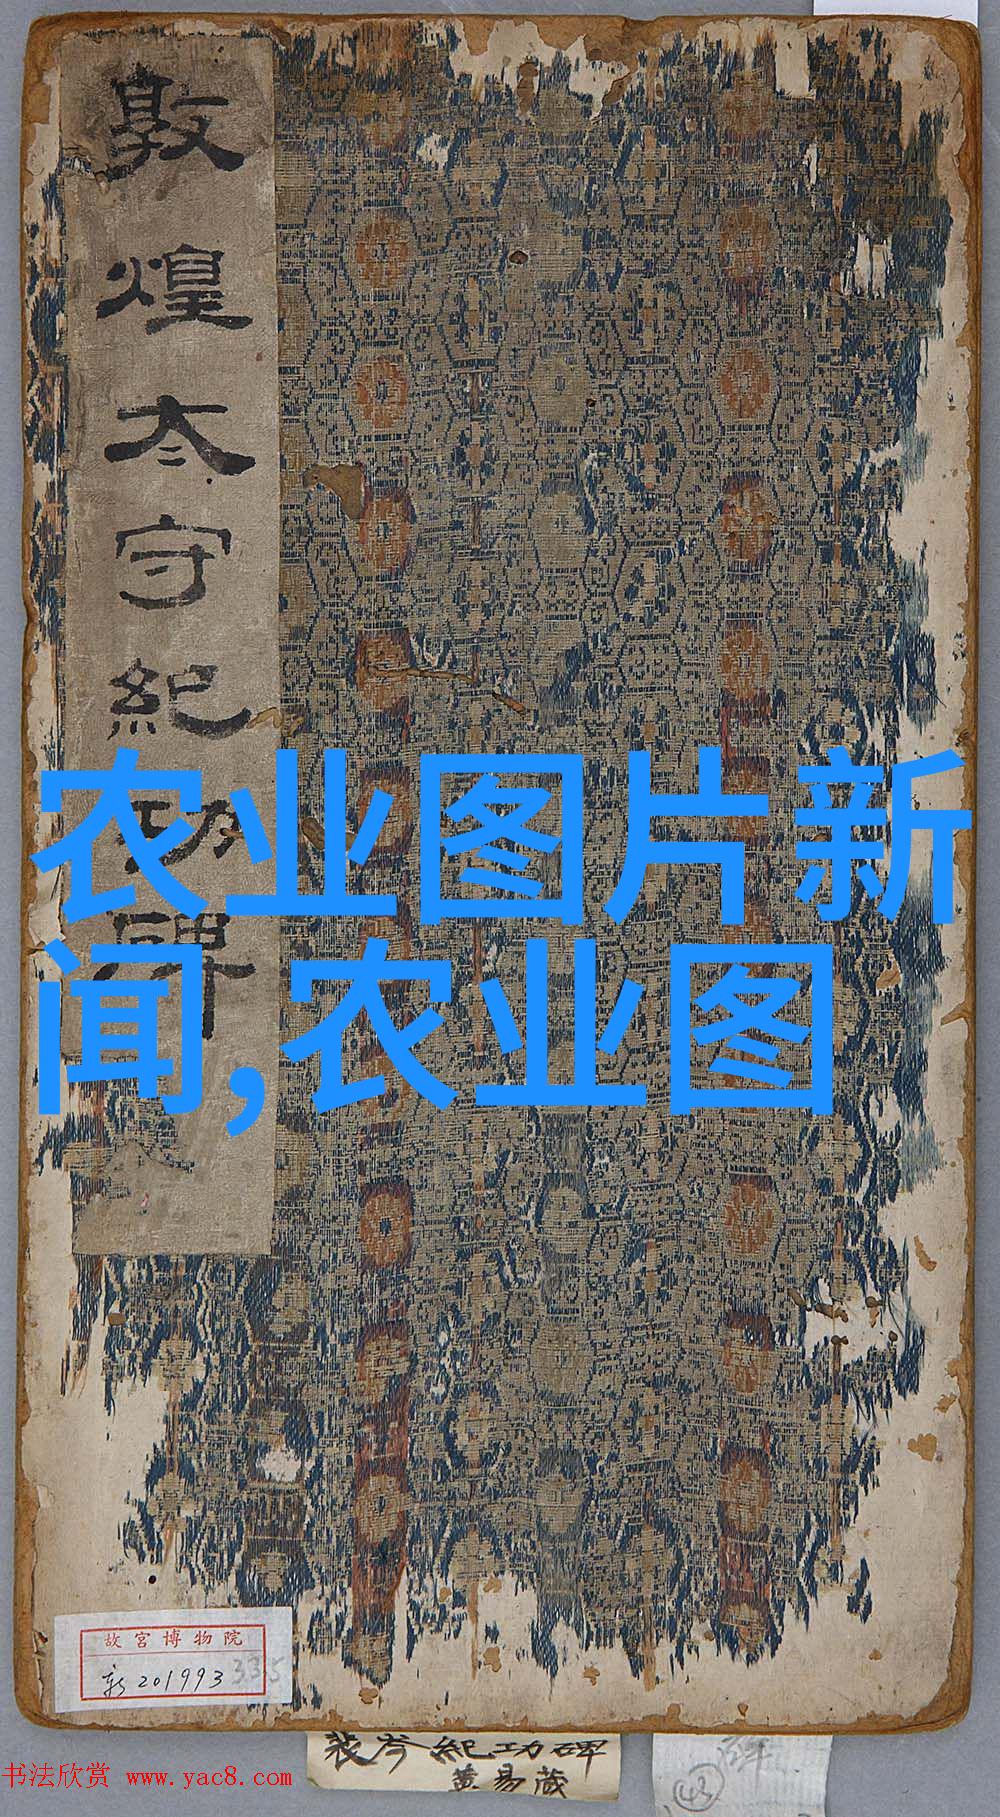 敦煌太守紀功碑
农业图片新
闻,农业图
故宫博物院
新201993 335
裴岑紀功碑
黄易藏
43
书法欣赏 www.yac8.com